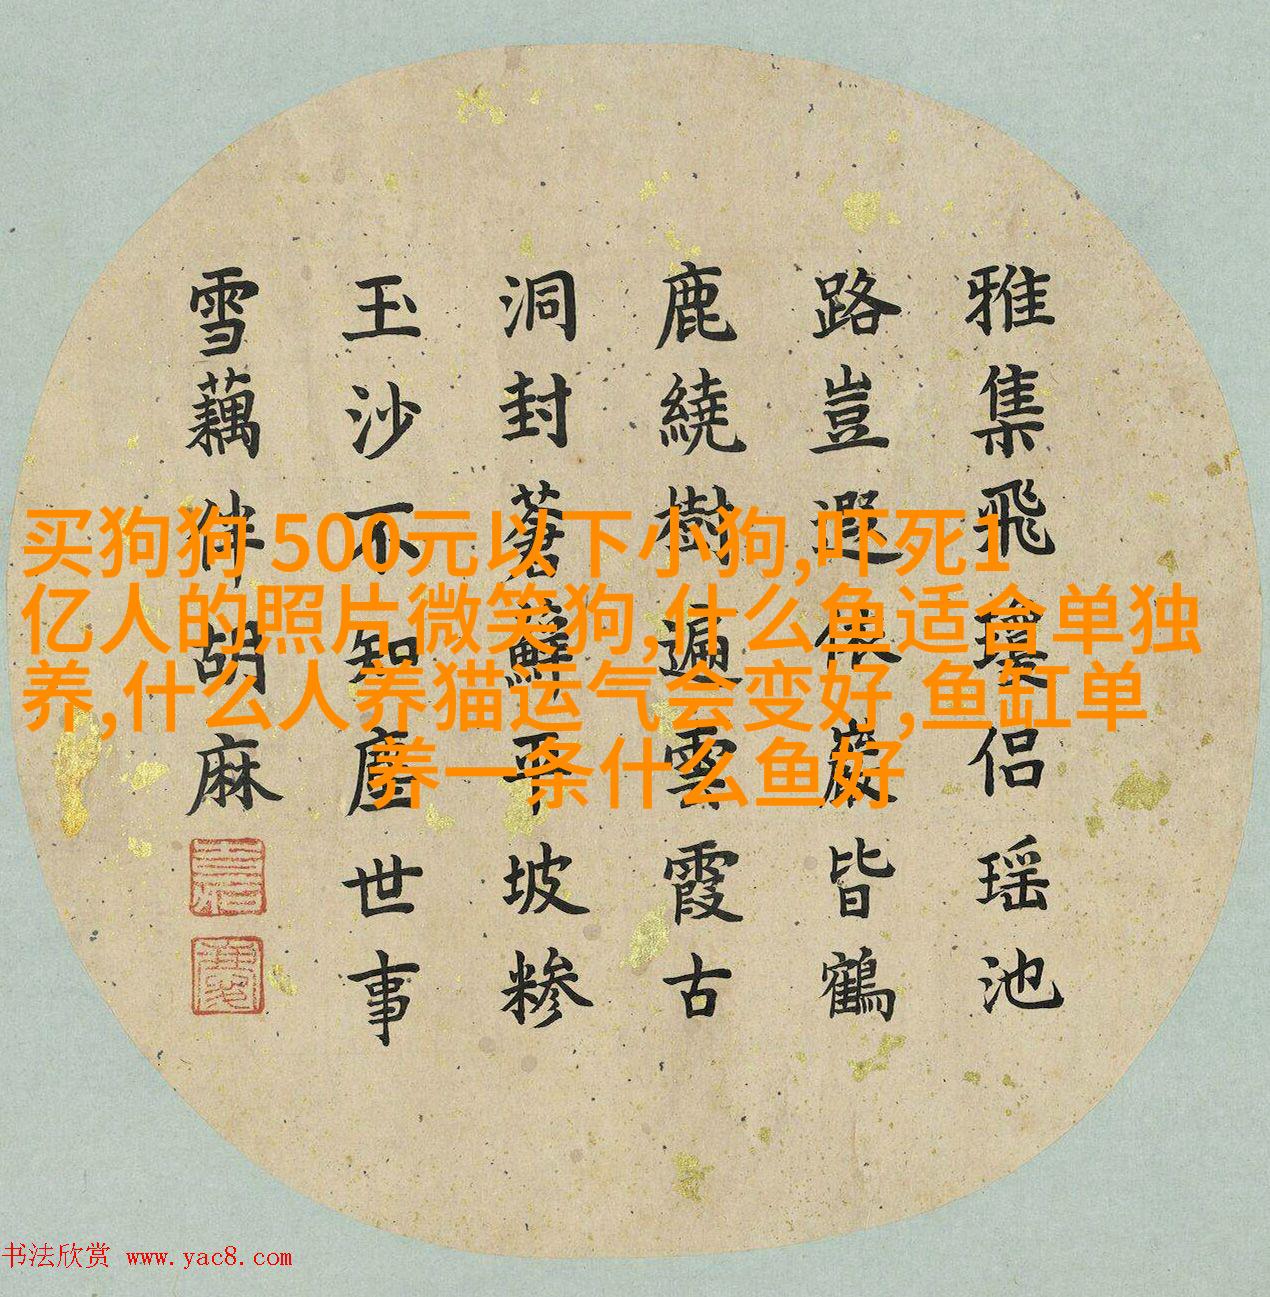 雅集飛瓊侣瑶池
路豈遐依巖皆鶴
鹿繞樹遍雲霞古
洞封蒼蘚平坡糝
玉沙不知塵世事
雪藕伴胡麻
买狗狗 500元以下小狗,吓死1
亿人的照片微笑狗,什么鱼适合单独
养,什么人养猫运气会变好,鱼缸单
养一条什么鱼好
书法欣赏 www.yac8.com